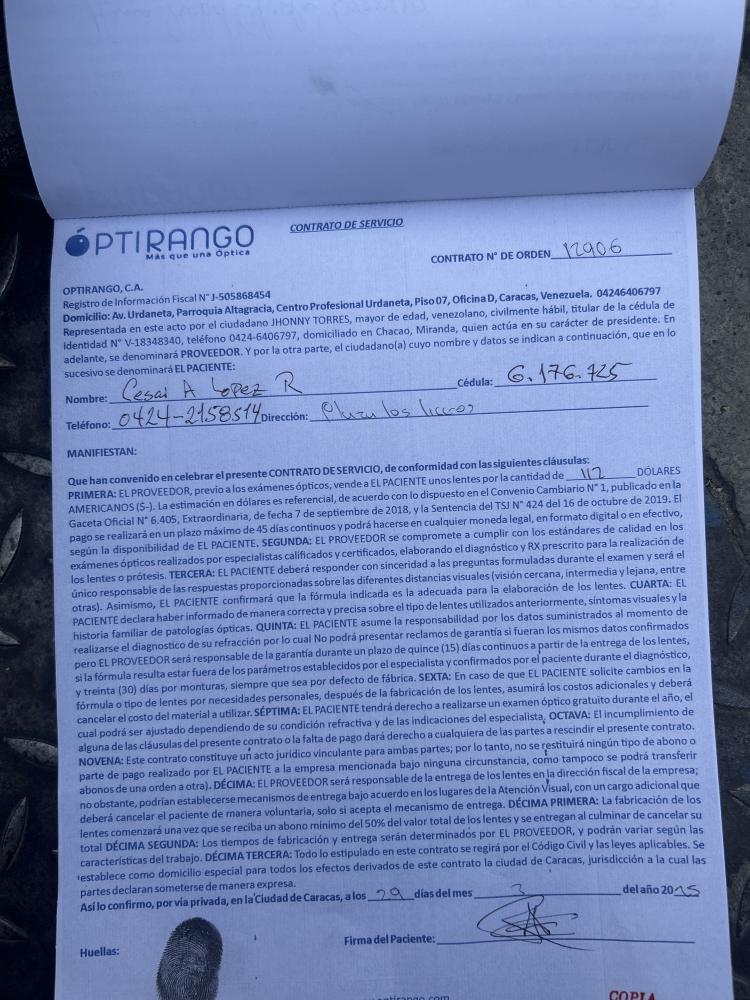 CONTRATO DE SERVICIO
ÓPTIRANGO
Más que una Óptica
CONTRATO N° DE ORDEN 12906
OPTIRANGO, C.A.
Registro de Información Fiscal N° J-505868454
Domicilio: Av. Urdaneta, Parroquia Altagracia, Centro Profesional Urdaneta, Piso 07, Oficina D, Caracas, Venezuela. 04246406797
Representada en este acto por el ciudadano JHONNY TORRES, mayor de edad, venezolano, civilmente hábil, titular de la cédula de
identidad N° V-18348340, teléfono 0424-6406797, domiciliado en Chacao, Miranda, quien actúa en su carácter de presidente. En
adelante, se denominará PROVEEDOR. Y por la otra parte, el ciudadano(a) cuyo nombre y datos se indican a continuación, que en lo
sucesivo se denominará EL PACIENTE:
Nombre: Cesar A Lopez R Cédula: 6.176.725
Teléfono: 0424-2158514 Dirección: los
MANIFIESTAN:
Que han convenido en celebrar el presente CONTRATO DE SERVICIO, de conformidad con las siguientes cláusulas:
PRIMERA: EL PROVEEDOR, previo a los exámenes ópticos, vende a EL PACIENTE unos lentes por la cantidad de 112 DÓLARES
AMERICANOS ($-). La estimación en dólares es referencial, de acuerdo con lo dispuesto en el Convenio Cambiario N° 1, publicado en la
Gaceta Oficial N° 6.405, Extraordinaria, de fecha 7 de septiembre de 2018, y la Sentencia del TSJ N° 424 del 16 de octubre de 2019. El
pago se realizará en un plazo máximo de 45 días continuos y podrá hacerse en cualquier moneda legal, en formato digital o en efectivo,
según la disponibilidad de EL PACIENTE. SEGUNDA: EL PROVEEDOR se compromete a cumplir con los estándares de calidad en los
exámenes ópticos realizados por especialistas calificados y certificados, elaborando el diagnóstico y RX prescrito para la realización de
los lentes o prótesis. TERCERA: EL PACIENTE deberá responder con sinceridad a las preguntas formuladas durante el examen y será el
único responsable de las respuestas proporcionadas sobre las diferentes distancias visuales (visión cercana, intermedia y lejana, entre
otras). Asimismo, EL PACIENTE confirmará que la fórmula indicada es la adecuada para la elaboración de los lentes. CUARTA: EL
PACIENTE declara haber informado de manera correcta y precisa sobre el tipo de lentes utilizados anteriormente, síntomas visuales y la
historia familiar de patologías ópticas. QUINTA: EL PACIENTE asume la responsabilidad por los datos suministrados al momento de
realizarse el diagnostico de su refracción por lo cual No podrá presentar reclamos de garantía si fueran los mismos datos confirmados
pero EL PROVEEDOR será responsable de la garantía durante un plazo de quince (15) días continuos a partir de la entrega de los lentes,
si la fórmula resulta estar fuera de los parámetros establecidos por el especialista y confirmados por el paciente durante el diagnóstico,
y treinta (30) días por monturas, siempre que sea por defecto de fábrica. SEXTA: En caso de que EL PACIENTE solicite cambios en la
fórmula o tipo de lentes por necesidades personales, después de la fabricación de los lentes, asumirá los costos adicionales y deberá
cancelar el costo del material a utilizar. SÉPTIMA: EL PACIENTE tendrá derecho a realizarse un examen óptico gratuito durante el año, el
cual podrá ser ajustado dependiendo de su condición refractiva y de las indicaciones del especialista. OCTAVA: El incumplimiento de
alguna de las cláusulas del presente contrato o la falta de pago dará derecho a cualquiera de las partes a rescindir el presente contrato.
NOVENA: Este contrato constituye un acto jurídico vinculante para ambas partes; por lo tanto, no se restituirá ningún tipo de abono o
parte de pago realizado por EL PACIENTE a la empresa mencionada bajo ninguna circunstancia, como tampoco se podrá transferir
abonos de una orden a otra). DÉCIMA: EL PROVEEDOR será responsable de la entrega de los lentes en la dirección fiscal de la empresa;
no obstante, podrían establecerse mecanismos de entrega bajo acuerdo en los lugares de la Atención Visual, con un cargo adicional que
deberá cancelar el paciente de manera voluntaria, solo si acepta el mecanismo de entrega. DÉCIMA PRIMERA: La fabricación de los
lentes comenzará una vez que se reciba un abono mínimo del 50% del valor total de los lentes y se entregan al culminar de cancelar su
total DÉCIMA SEGUNDA: Los tiempos de fabricación y entrega serán determinados por EL PROVEEDOR, y podrán variar según las
características del trabajo. DÉCIMA TERCERA: Todo lo estipulado en este contrato se regirá por el Código Civil y las leyes aplicables. Se
establece como domicilio especial para todos los efectos derivados de este contrato la ciudad de Caracas, jurisdicción a la cual las
partes declaran someterse de manera expresa.
Así lo confirmo, por vía privada, en la Ciudad de Caracas, a los 29 días del mes 3 del año 2025
Huellas:
Firma del Paciente:
optirango.com
COPIA